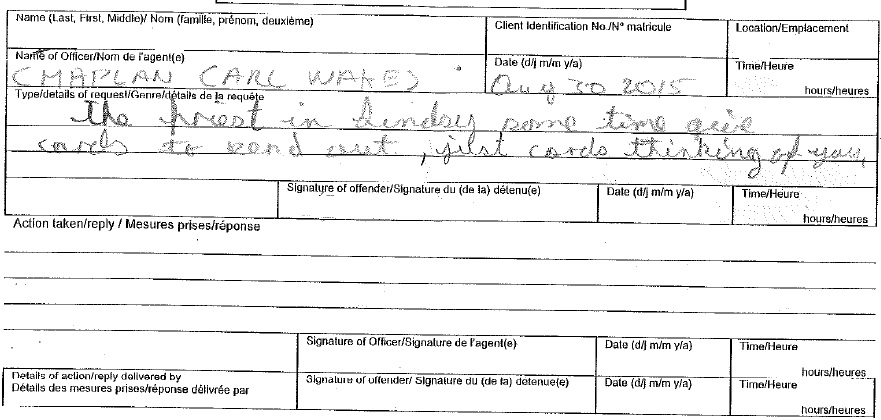 Name (Last, First, Middle)/ Nom (famille, prénom, deuxième)
Client Identification No./N° matricule
Location/Emplacement
Name of Officer/Nom de l'agent(e)
Date (d/j m/m y/a)
Time/Heure
CHAPLAN CARL WAKE
Aug 30 2015
hours/heures
Type/details of request/Genre/détails de la requête
the priest in Lindsy some time give
cards to send out, jilst cards thinking of you,
Signature of offender/Signature du (de la) détenu(e)
Date (d/j m/m y/a)
Time/Heure
hours/heures
Action taken/reply / Mesures prises/réponse
Signature of Officer/Signature de l'agent(e)
Date (d/j m/m y/a)
Time/Heure
hours/heures
Details of action/reply delivered by
Détails des mesures prises/réponse délivrée par
Signature of offender/ Signature du (de la) détenue(e)
Date (d/j m/m y/a)
Time/Heure
hours/heures